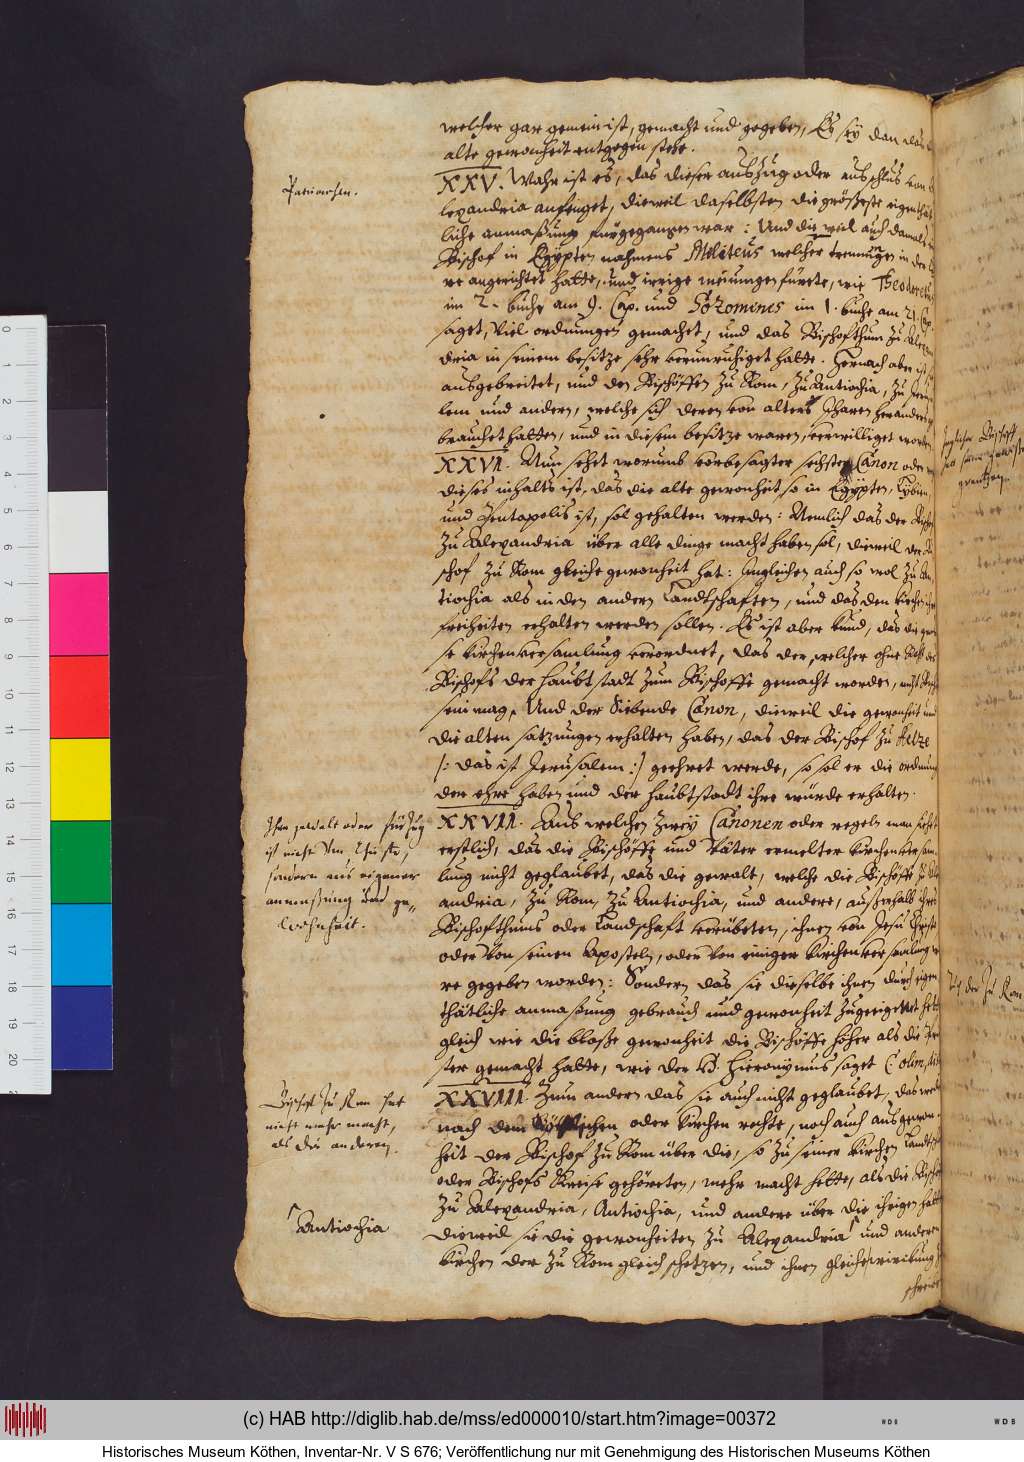 welcher gar gemein ist, gemacht und gegeben, Es sey dan das
alte gewonheit entgegen stehe.
Patriarchen.
XXV. Wahr ist es, das dieser auszug oder ausschlus von
lexandria anfenget, dieweil daselbsten die größeste eigenthät
liche anmaßung furgegangen war: Und die weil auch damals
Bischof in Egypten nahmens Militeus welcher trennungen in der
re angerichtet hatte, und irrige meinungen fürete, wie Theodoretus
im 2. buche am 9. Cap. und Sozomenus im 1. buche am 21. Cap.
saget, viel ordnungen gemachet, und das Bischofthum zu Alexan
dria in seinem besitze sehr verunruhiget hatte. Hernach aber ist
ausgebreitet, und den Bischöffen zu Rom, zu Antiochia, zu Jerusa
lem und andern, welche sich deren von alters
brauchet hatten, und in diesem besitze waren, verwilliget worden
XXVI. Nun sehet worumb vorbesagter sechster Canon oder
dieses inhalts ist, das die alte gewonheit so in Egypten, Lybien
und Pentapolis ist, sol gehalten werden: Nemlich das der Bischof
zu Alexandria über alle dinge macht haben sol, dieweil der Bi
schof zu Rom gleiche gewonheit hat: Jngleichen auch so wol zu An
tiochia als in den andern Landtschaften, und das den kirchen ihre
freiheiten erhalten werden sollen. Es ist aber kund, das die gros
se kirchenversamlung verordnet, das der, welcher ohne
Bischofs der haubtstadt zum Bischoffe gemacht worden, nicht Bischof
sein mag. Und der Siebende Canon, dieweil die gewonheit und
die alten satzungen erhalten haben, das der Bischof zu Helze
/: das ist Jerusalem :/ geehret werde, so sol er die ordnung
der ehre haben und der haubtstadt ihre würde erhalten.
Ihre gewalt oder fürzug
ist nicht von Christo,
sondern aus eigener
anmassung und ge„
wohnheit.
XXVII. Aus welchen zwey Canonen oder regeln man siehet
erstlich, das die Bischöffe und Väter ermelter kirchenversam
lung nicht geglaubet, das die gewalt, welche die Bischöffe zu Alex
andria, zu Rom, zu Antiochia, und andere, ausserhalb ihres
Bischofthums oder Landschaft verübeten, ihnen von Jesu Christo
oder von seinen Aposteln, oder von einiger kirchenversamlung
re gegeben worden: Sondern das sie dieselbe ihnen durch eigen
thätliche anmaßung gebrauch und gewonheit zugeeignet hetten
gleich wie die bloße gewonheit die Bischöffe höher als die Prie
ster gemacht hatte, wie der H. Hieronymus saget
Bischof zu Rom hat
nicht mehr macht,
als die anderen.
XXVIII. Zum andern das sie auch nicht geglaubet, das weder
nach dem Göttlichen oder kirchen rechte, noch auch aus gewon
heit der Bischof zu Rom über die, so zu seiner kirchen Landtschaft
oder Bischofs Kreise gehöreten, mehr macht hette, als die Bischöffe
zu Alexandria, Antiochia, und andere über die ihrigen hatten
Antiochia
dieweil sie die gewonheiten zu Alexandria und anderen
kirchen der zu Rom gleich schetzen, und ihnen gleiche
schreiben
(c) HAB http://diglib.hab.de/mss/ed000010/start.htm?image=00372
Historisches Museum Köthen, Inventar-Nr. V S 676; Veröffentlichung nur mit Genehmigung des Historischen Museums Köthen